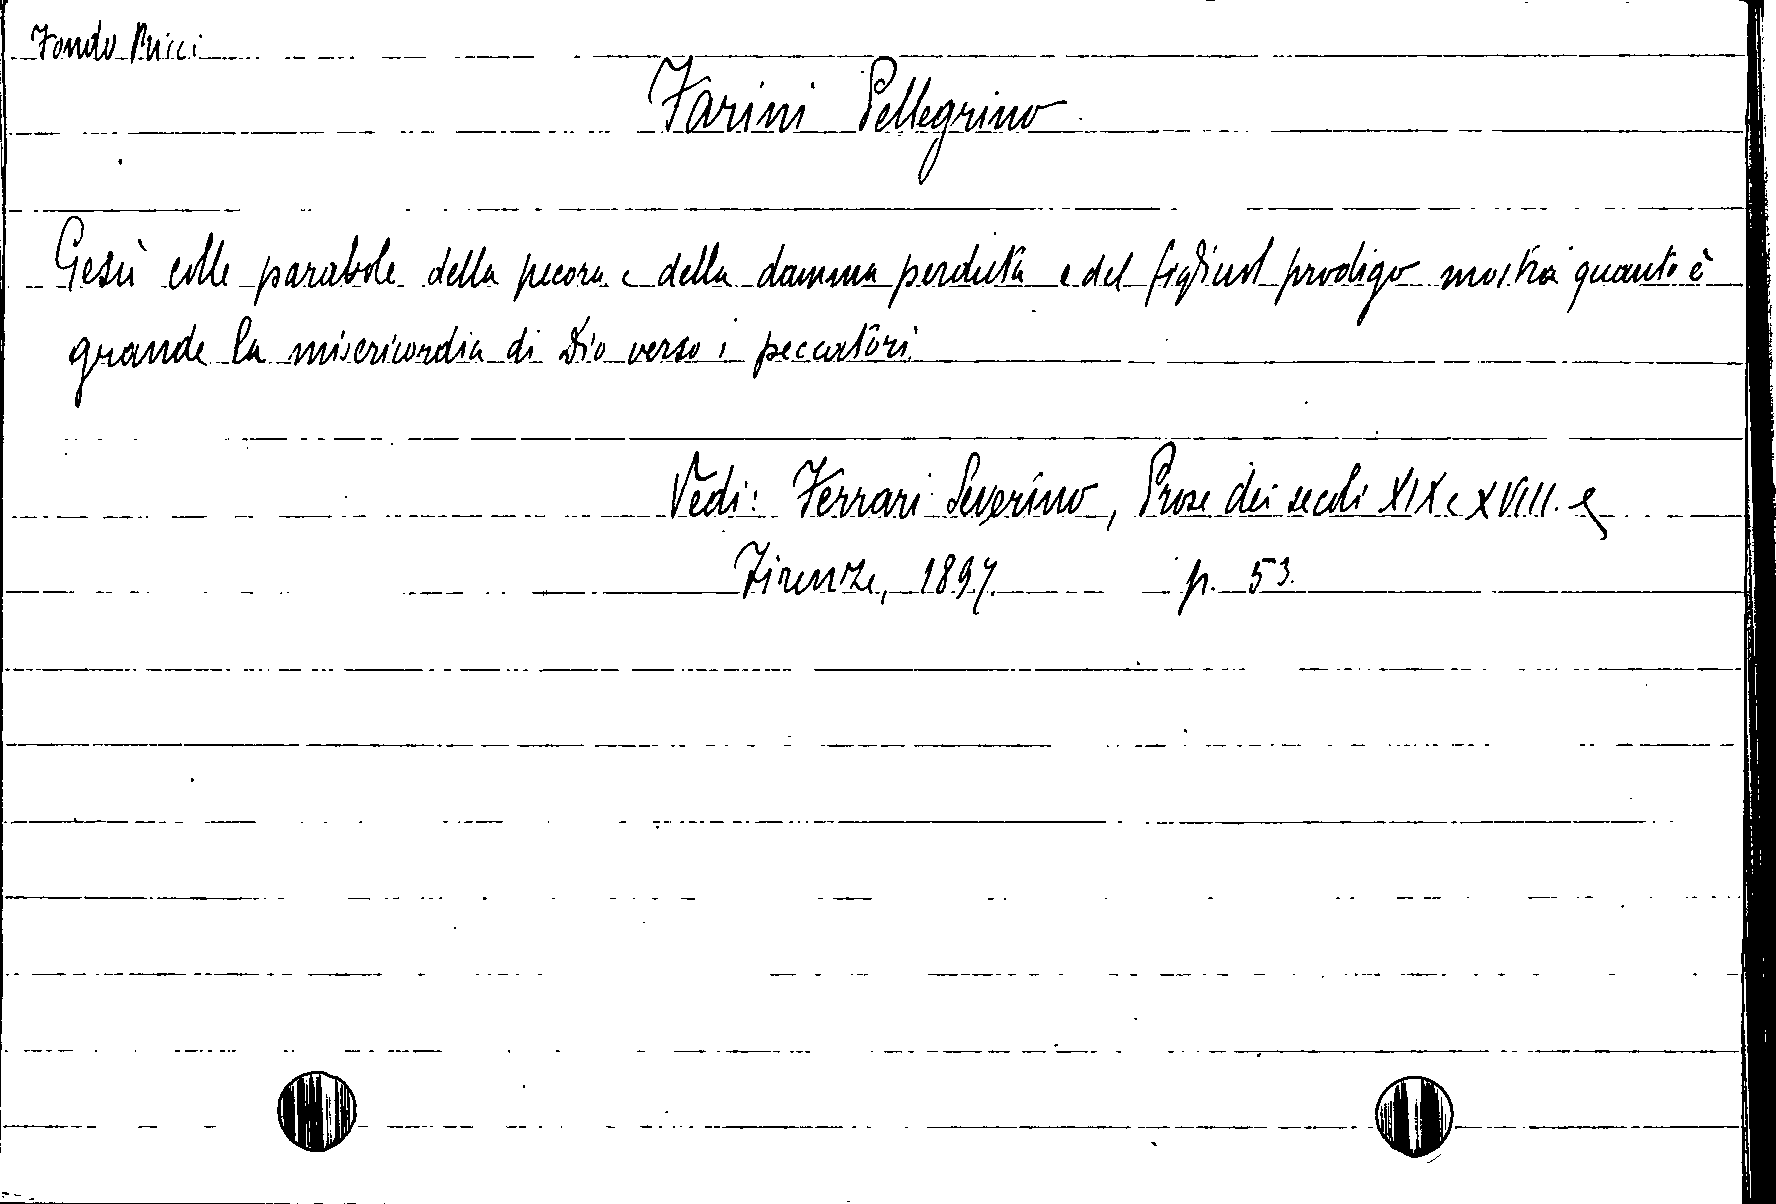 Fondo Ricci
Farini Pellegrino
Gesù colle parabole della pecora e della damma perduta e del figliuol prodigo mostra quanto è
grande la misericordia di Dio verso i peccatori
Vedi: Ferrari Severino, Prose dei secoli XIX e XVIII.
Firenze, 1897. p. 53.